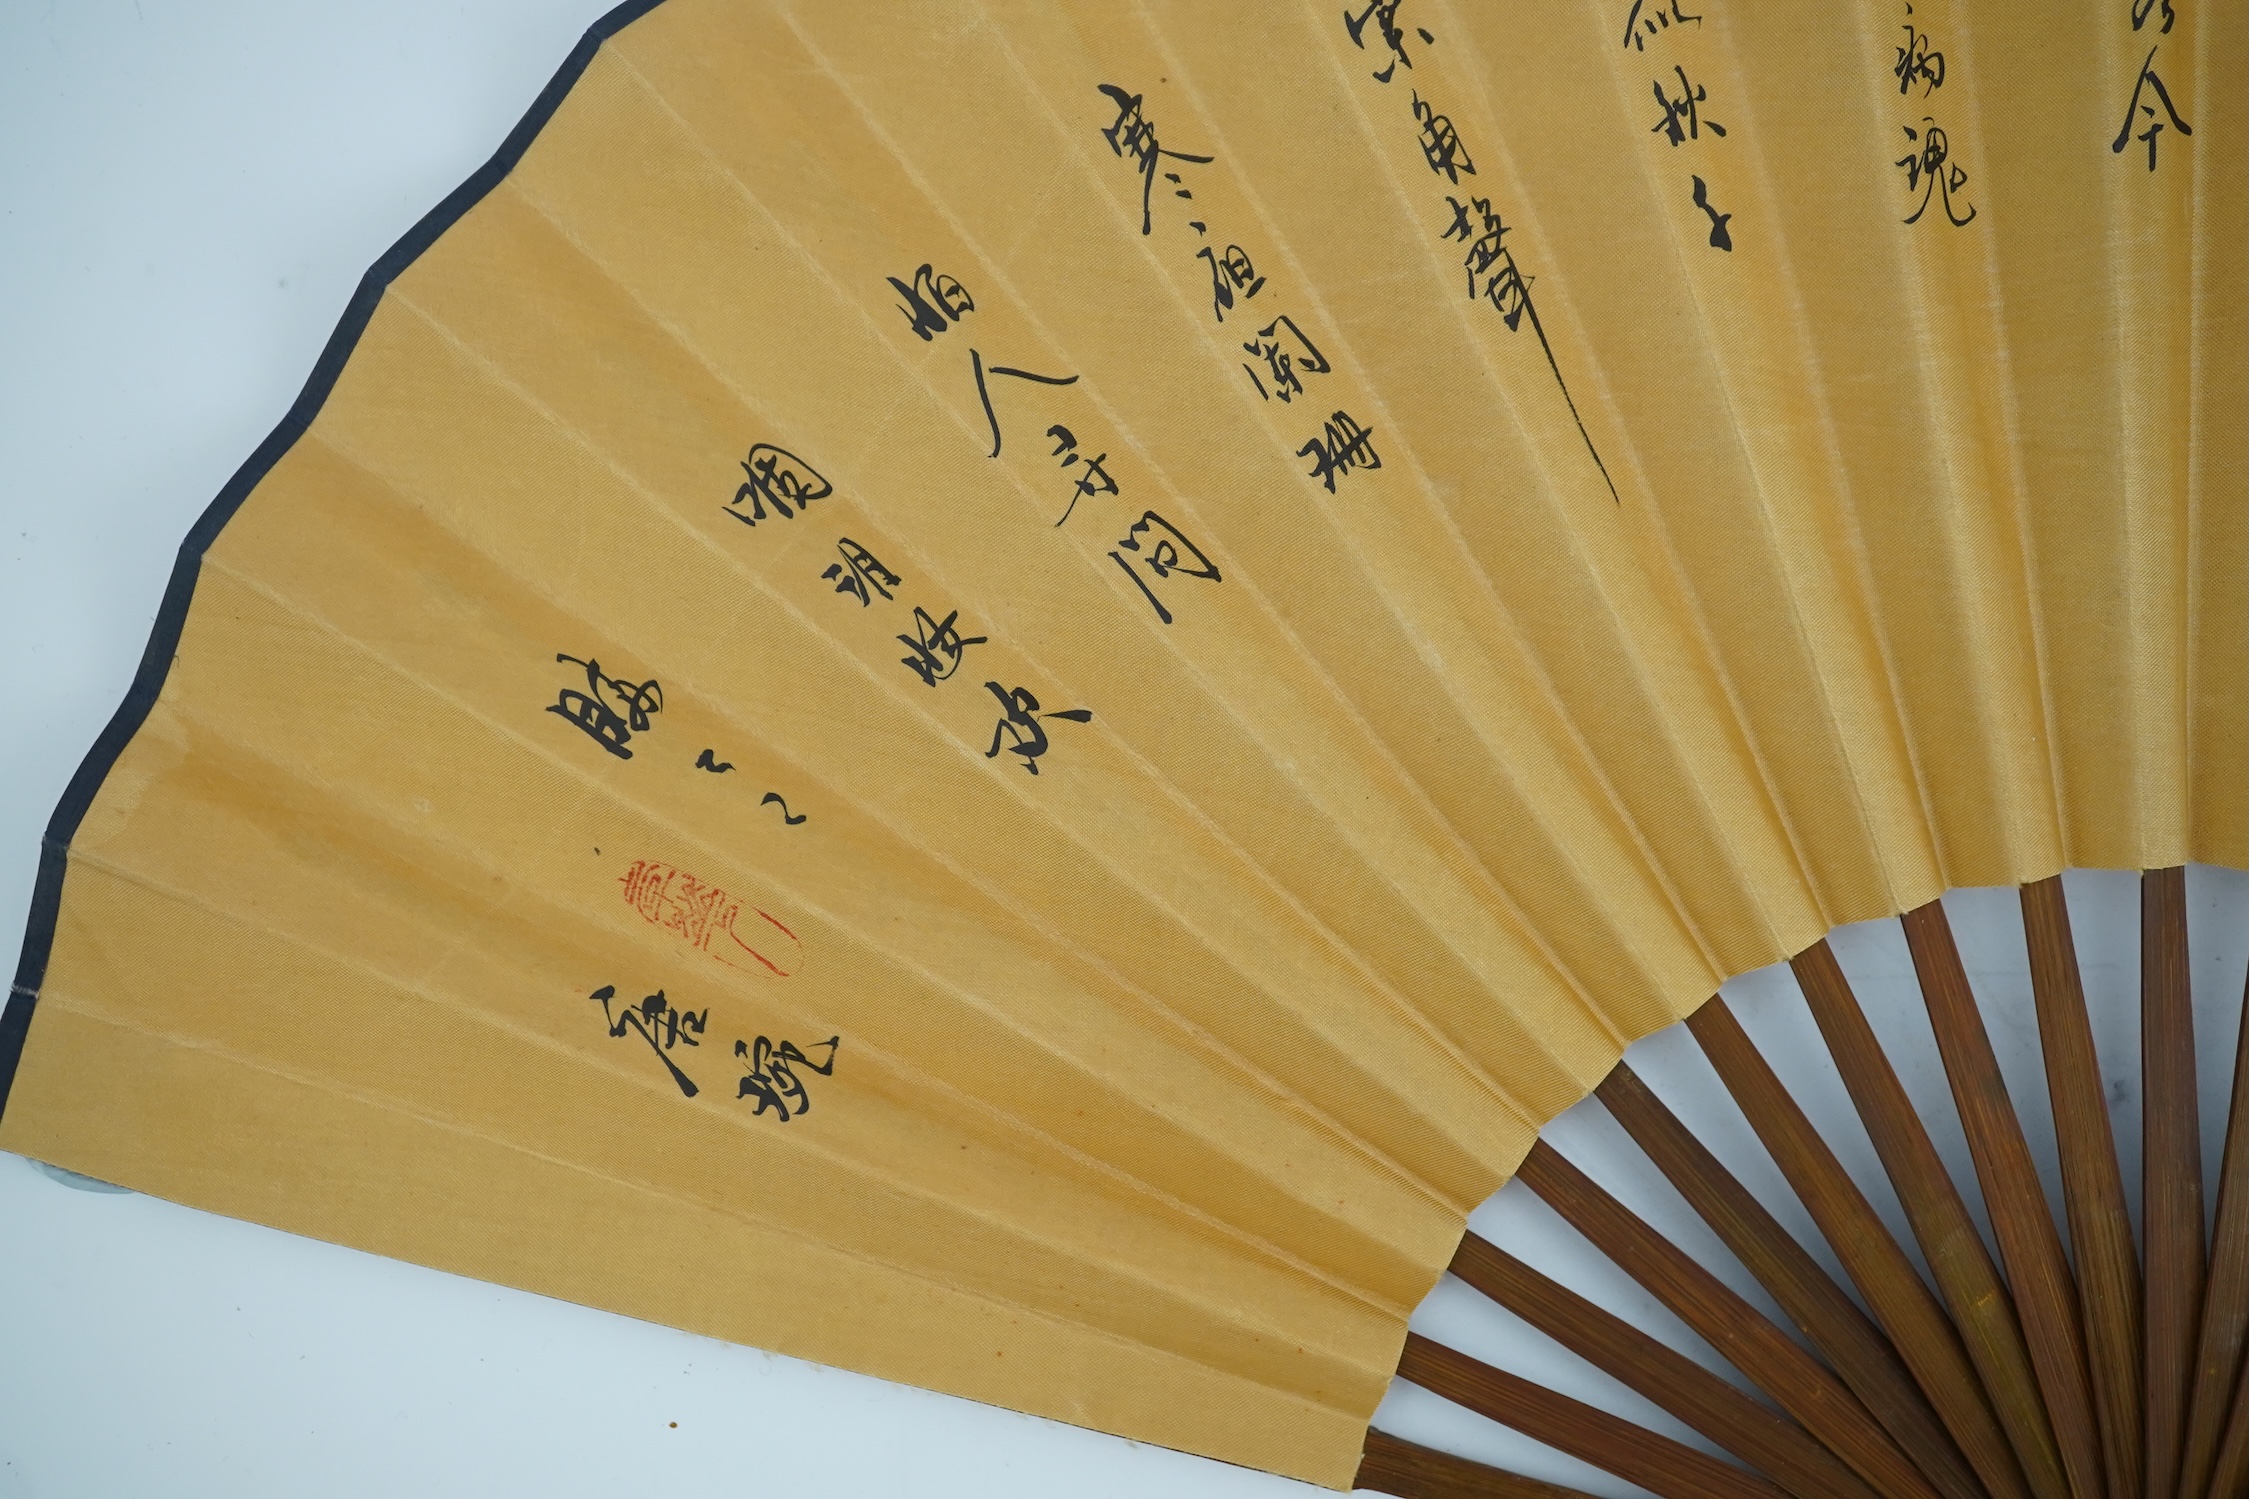 今
病魂
似秋千
索角聲
寒夜闌珊
怕人尋問
咽淚妝歡
瞞
唐琬